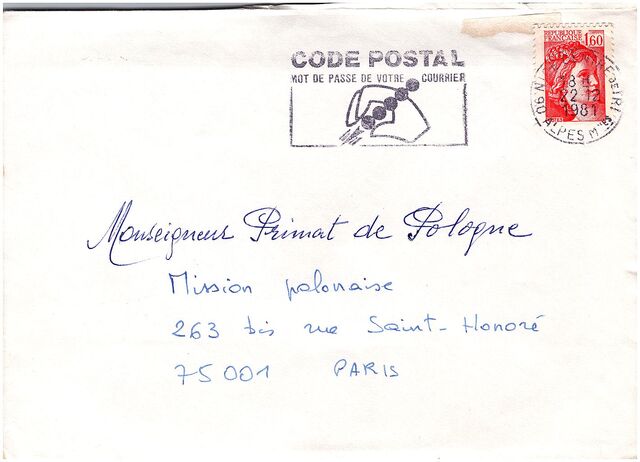 CODE POSTAL
MOT DE PASSE DE VOTRE COURRIER
REPUBLIQUE
FRANCAISE 1,60
18 H
22-12
1981
06 ALPES Mmes
Monseigneur Primat de Pologne
Mission polonaise
263 bis rue Saint-Honoré
75001 PARIS